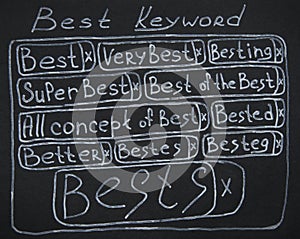 Best Keyword
Best x Very Best x Besting x
Super Best x Best of the Best x
All concept of Best x Bested x
Better x Bestes x Besteg x
Bests x